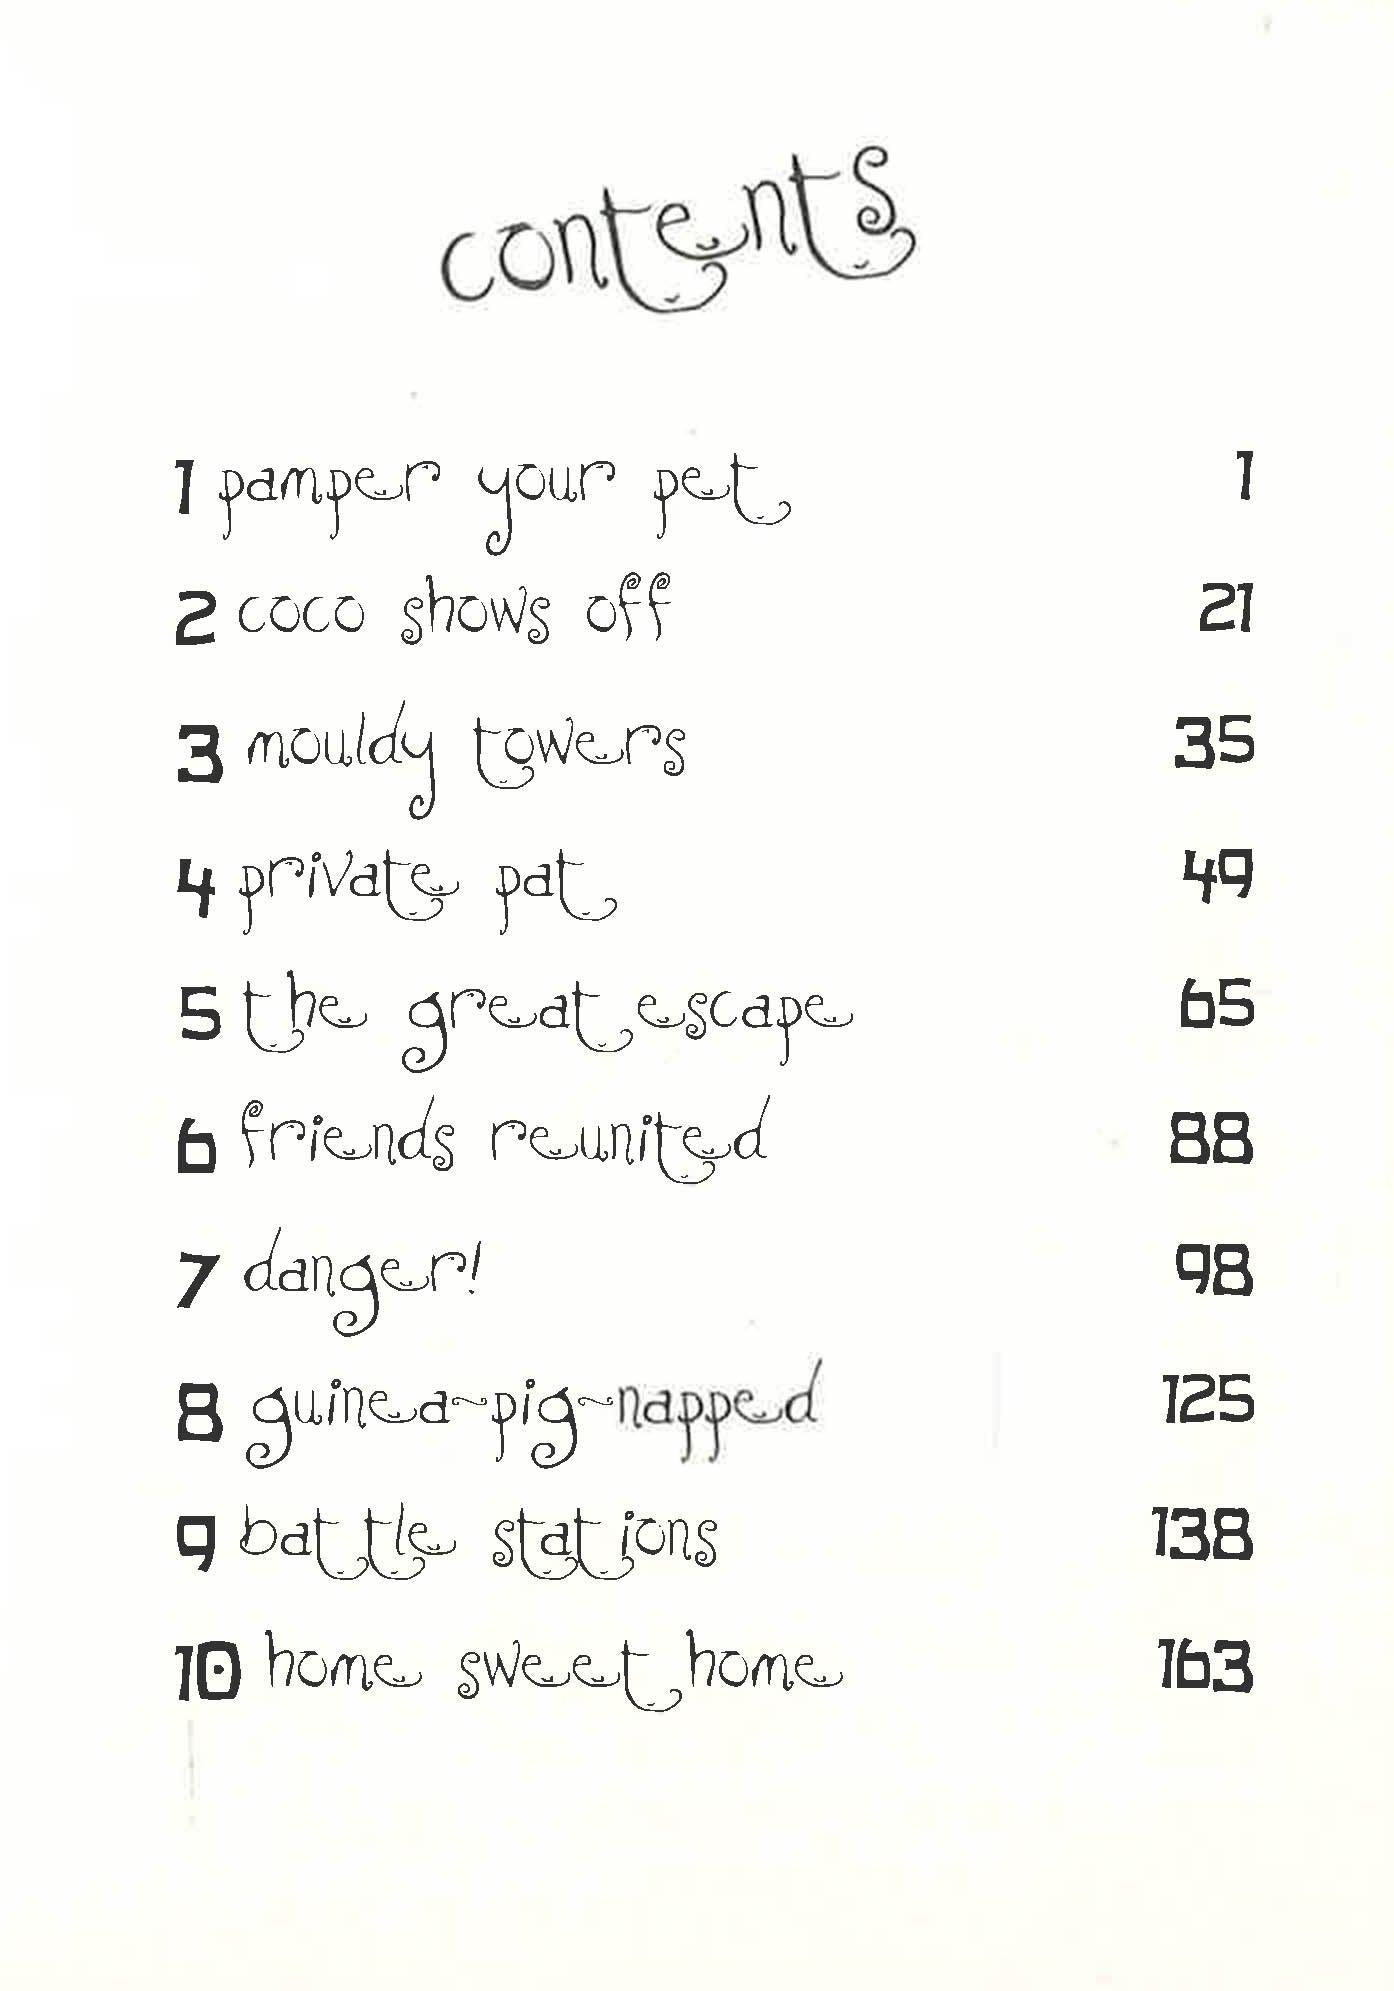 contents
1 pamper your pet 1
2 coco shows off 21
3 mouldy towers 35
4 private pat 49
5 the great escape 65
6 friends reunited 88
7 danger! 98
8 guinea~pig~napped 125
9 battle stations 138
10 home sweet home 163